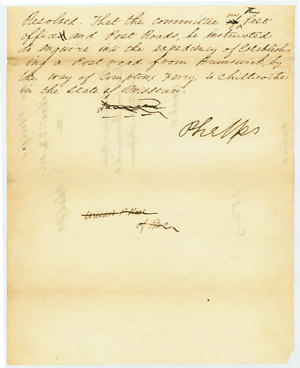 Resolved. That the committee on the post
offices and Post Roads, be instructed
to inquire into the expediency of establish
ing a Post road from Brunswick by
the way of Comptons Ferry to Chillicothe
in the State of Missouri.
Phelps
of